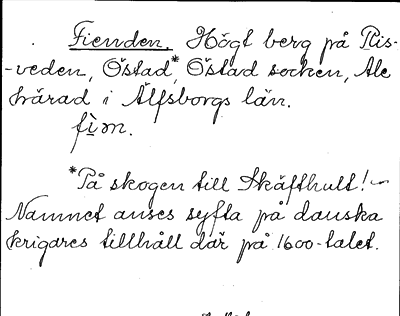 Fienden. Högt berg på Ris-
-veden, Östad*, Östad socken, Ale
härad i Älfsborgs län.
fìm.
*På skogen till Skäfthult!~
Namnet anses syfta på danska
krigares tillhåll där på 1600-talet.